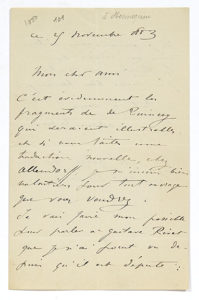 ce 25 novembre 1883
Mon cher ami
C'est évidemment les
fragments de de
qui seraient illustrés
et si vous faites une
traduction nouvelle, chez
Allendorff je bien
volontiers pour tout ouvrage
que vous voudrez.
Je vais faire mon possible
pour parler à Gustave Rivet
que je n'ai point vu de-
puis qu'il est député :